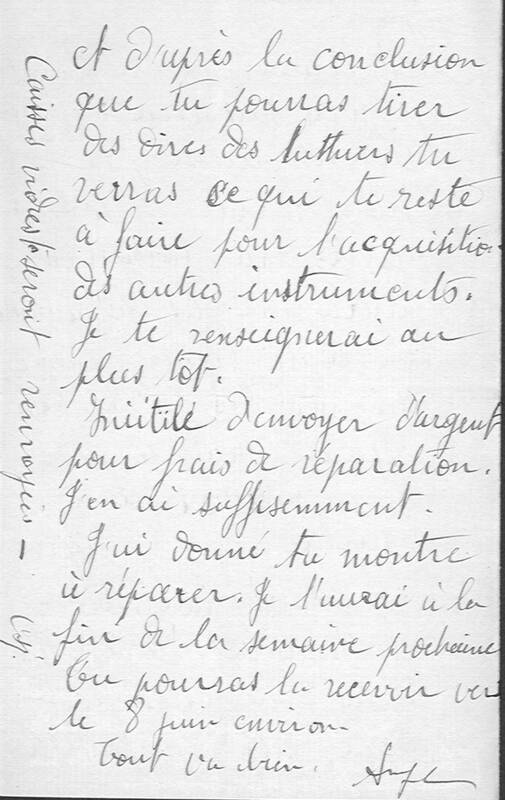 et d'après la conclusion
que tu pourras tirer
des dires des luthiers tu
verras ce qui te reste
à faire pour l'acquisition
des autres instruments.
Je te renseignerai au
plus tôt.
Inutile d'envoyer d'argent
pour frais de réparation.
J'en ai suffisemment.
J'ai donné ta montre
à réparer. Je l'aurai à la
fin de la semaine prochaine
Tu pourras la recevoir vers
le 8 juin environ.
Tout va bien.
Caisses vides te seront renvoyées —